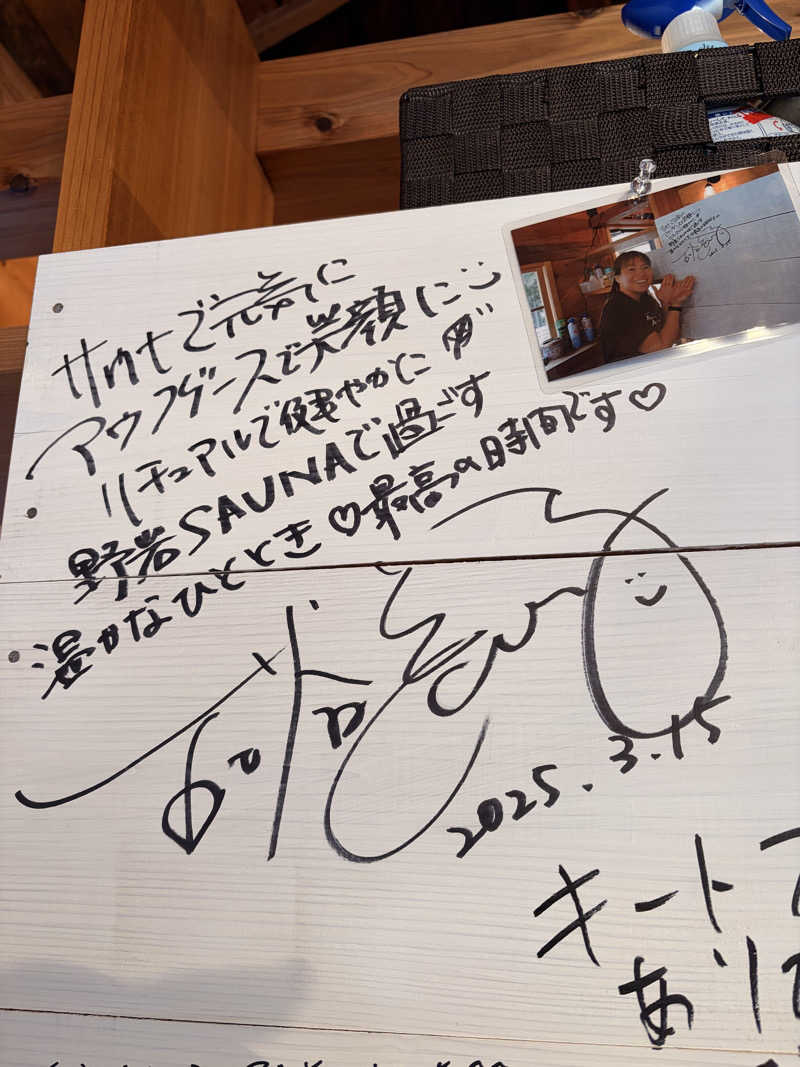 サウナで元気に
アウフグースで笑顔に
リチュアルで健やかに
野岩SAUNAで過ごす
温かなひととき♡最高の時間です♡
2025.3.15
キート
あり